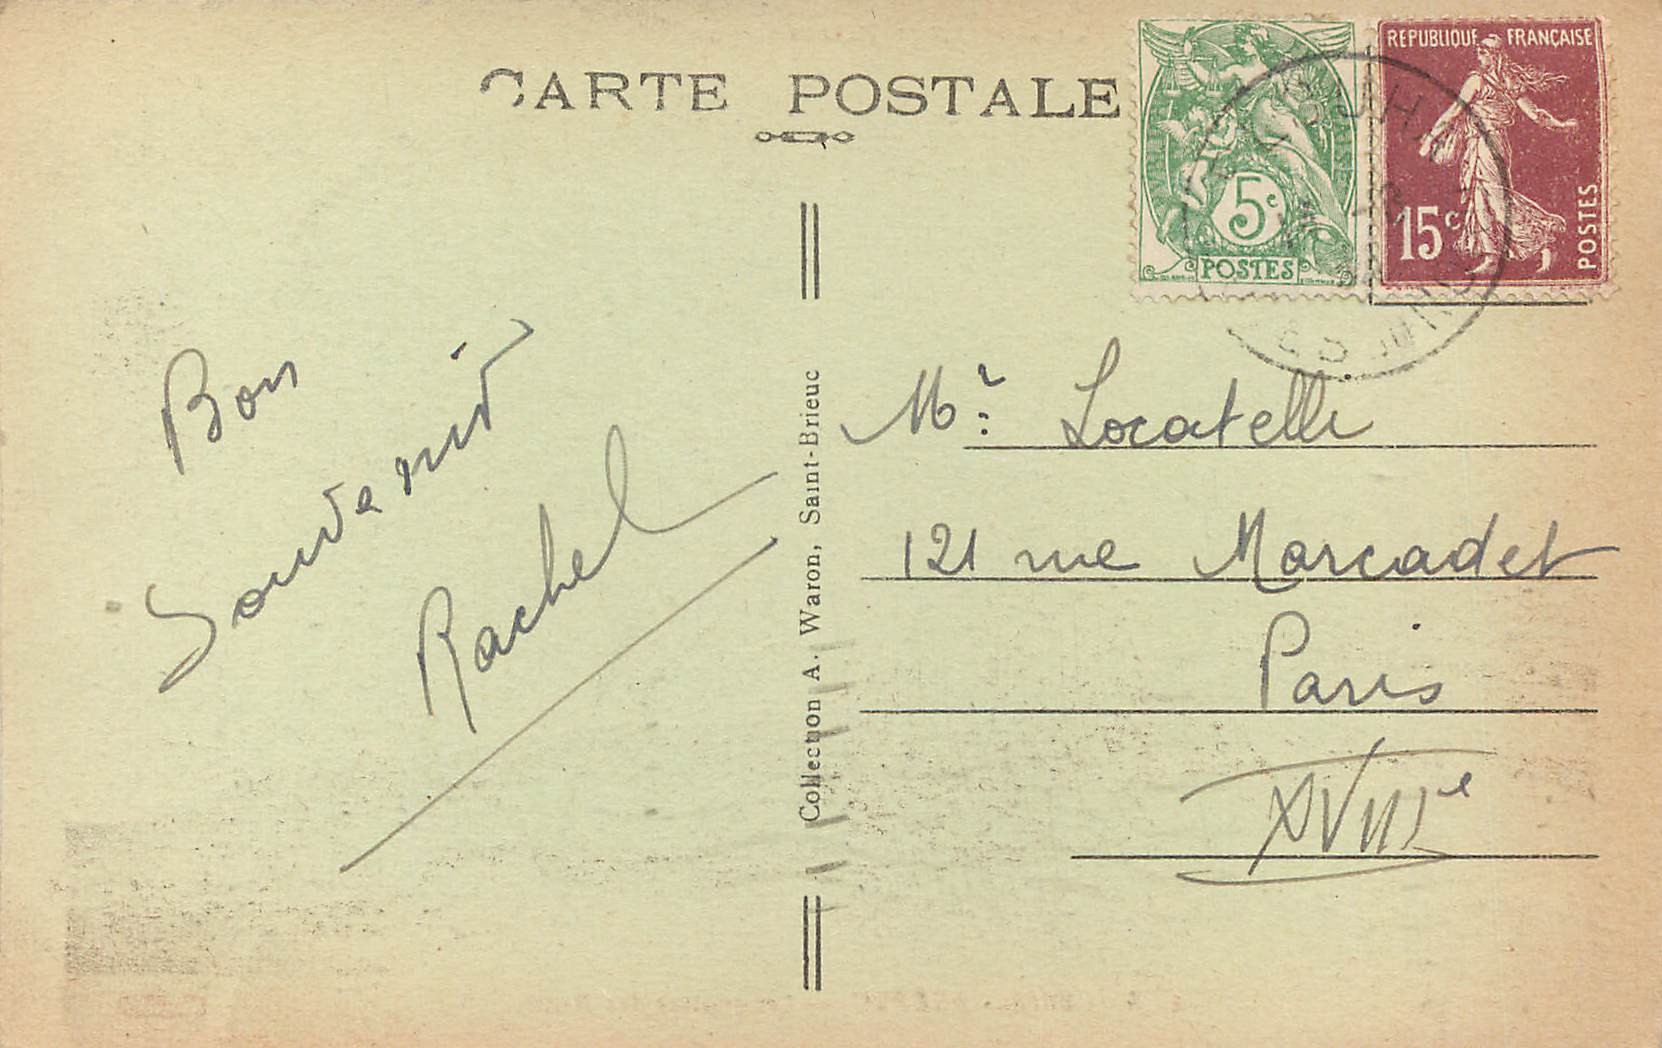 CARTE POSTALE
5c
POSTES
REPUBLIQUE FRANÇAISE
15c
POSTES
Bon
Souvenir
Rachel
Collection A. Waron, Saint-Brieuc
Mr: Locatelli
121 rue Marcadet
Paris
XVIIIe